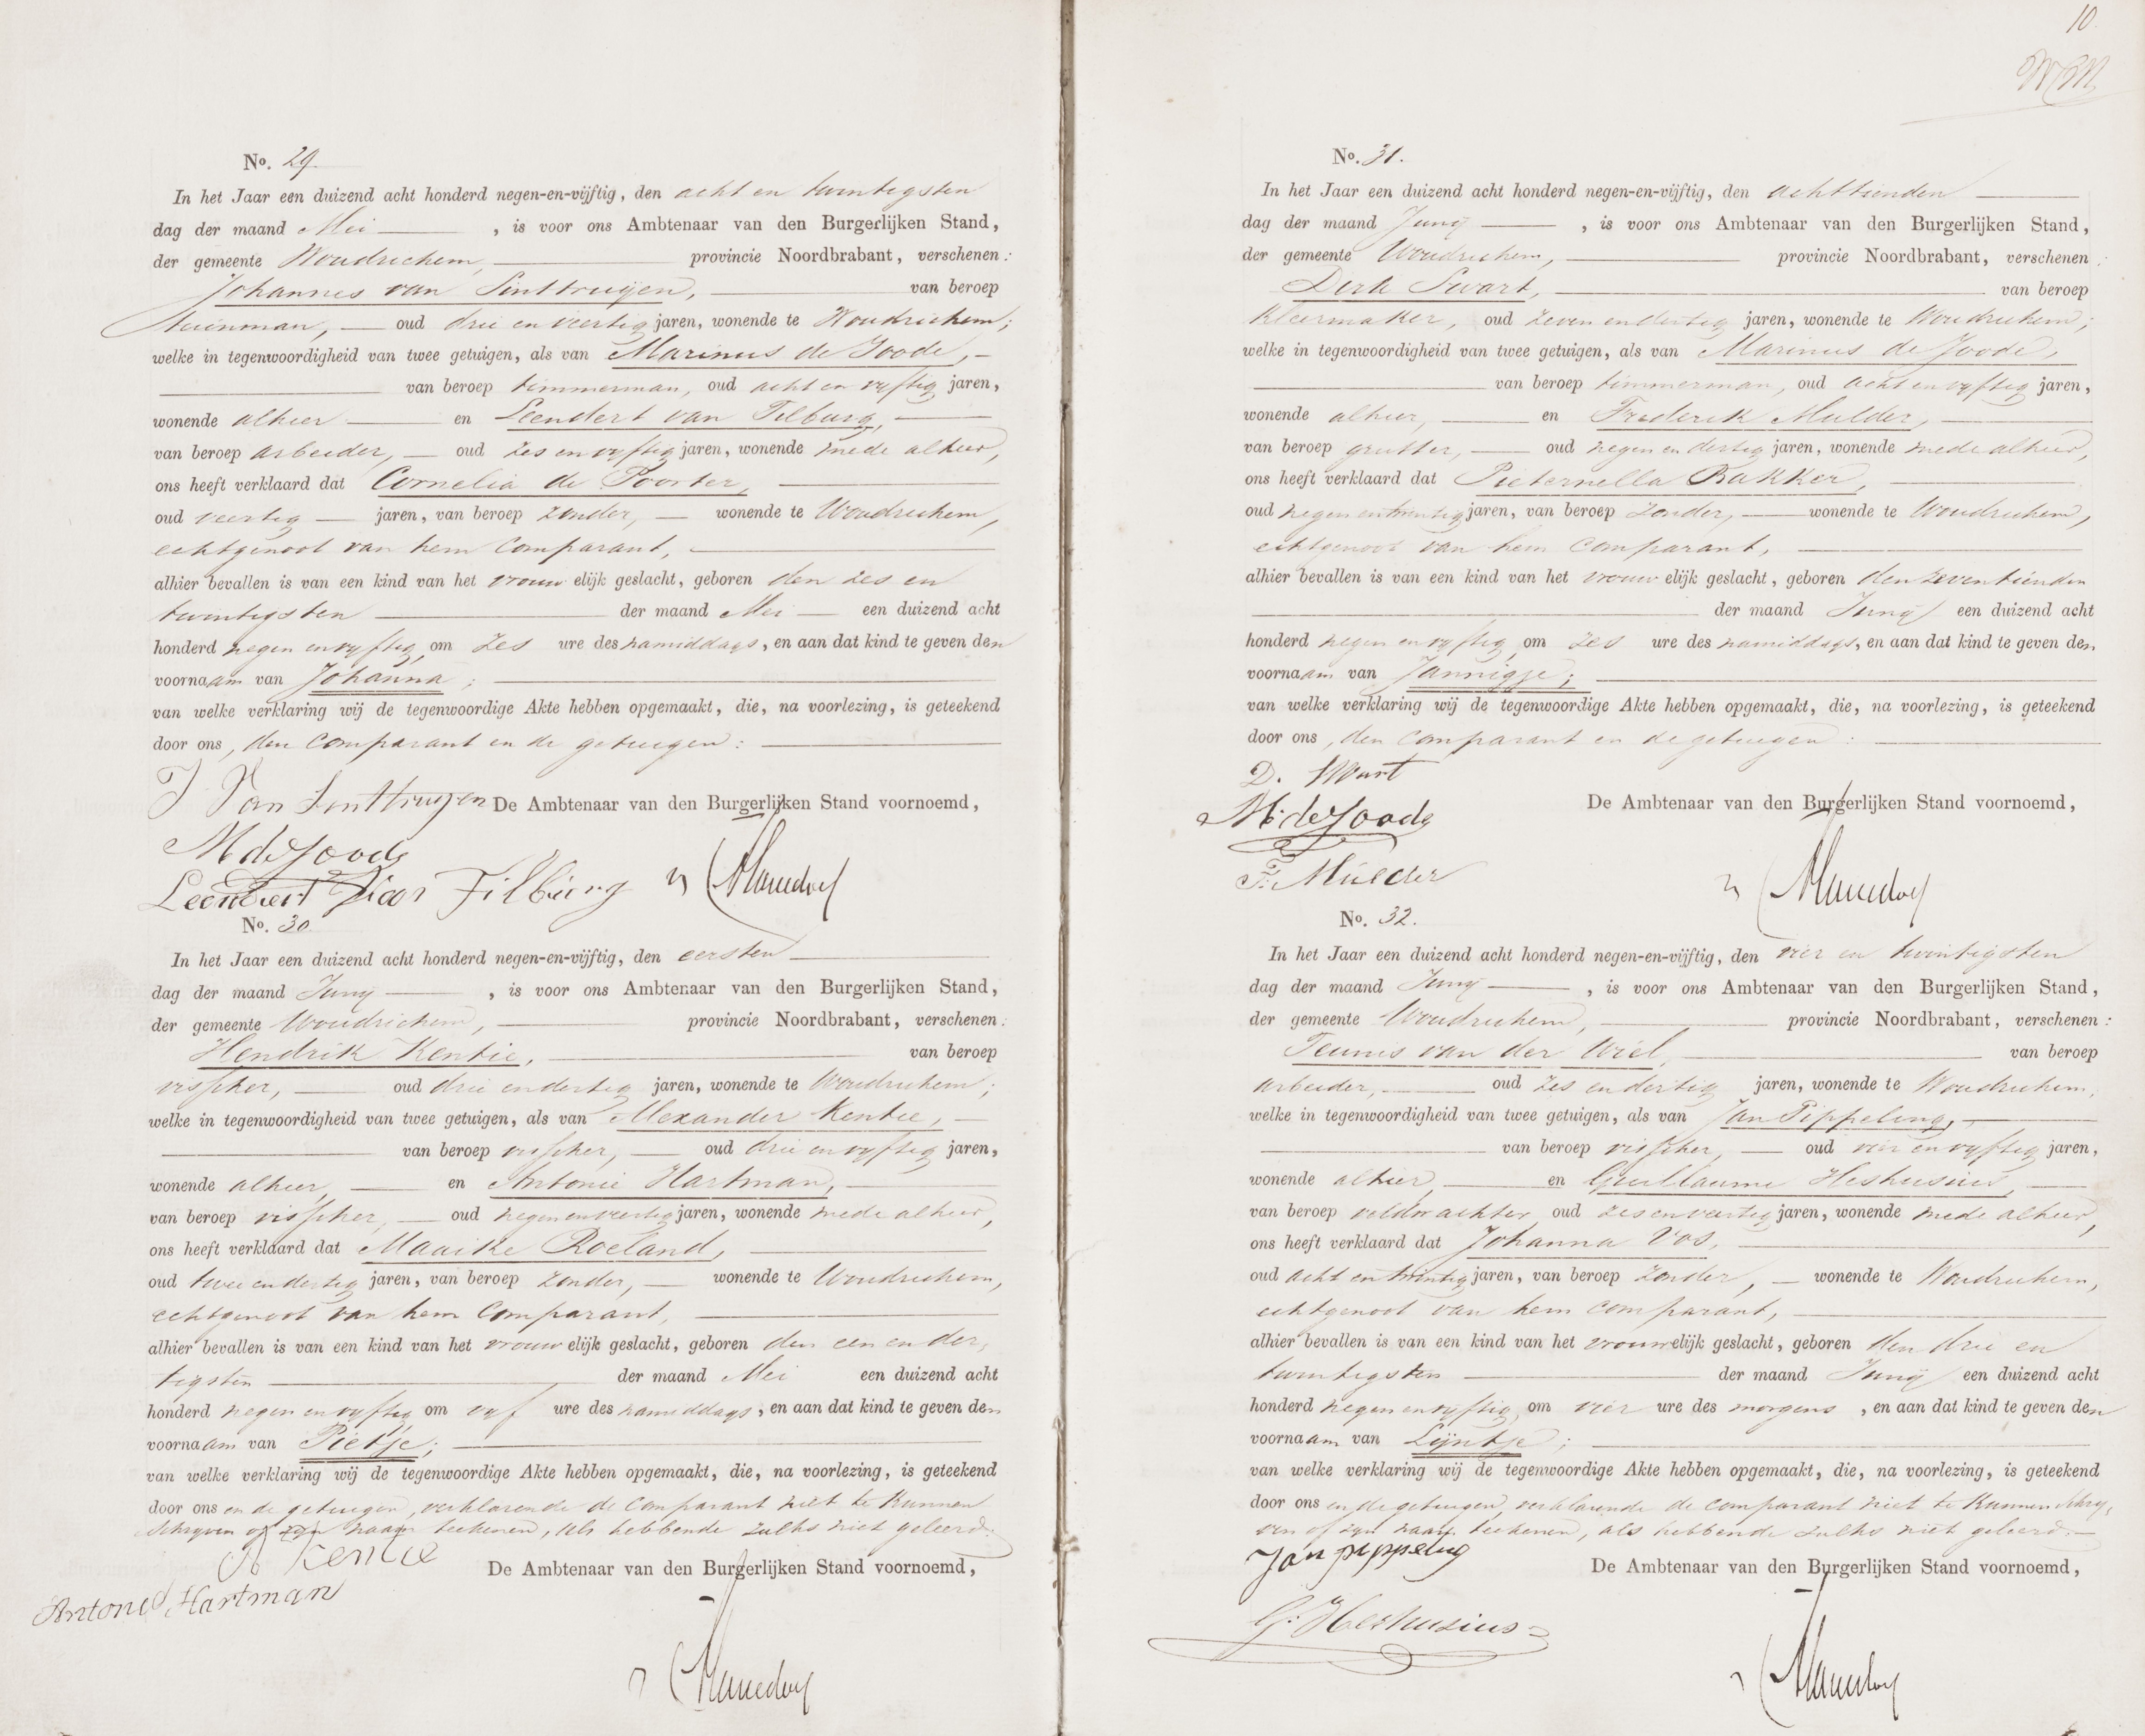 No. 29.
In het Jaar een duizend acht honderd negen-en-vijftig, den acht en twintigsten
dag der maand Mei , is voor ons Ambtenaar van den Burgerlijken Stand,
der gemeente Woudrichem, provincie Noordbrabant, verschenen:
Johannes van Sinttruijen, van beroep
tuinman, oud drie en veertig jaren, wonende te Woudrichem;
welke in tegenwoordigheid van twee getuigen, als van Marinus de Joode,
van beroep timmerman, oud acht en vyftig jaren,
wonende alhier en Leendert van Tilburg,
van beroep arbeider, oud zes en vyftig jaren, wonende mede alhier,
ons heeft verklaard dat Cornelia de Poorter,
oud veertig jaren, van beroep zonder, wonende te Woudrichem,
echtgenoot van hem Comparant,
alhier bevallen is van een kind van het vrouwelijk geslacht, geboren den zes en
twintigsten der maand Mei een duizend acht
honderd negen en vyftig, om zes ure des namiddags, en aan dat kind te geven den
voornaam van Johanna;
van welke verklaring wij de tegenwoordige Akte hebben opgemaakt, die, na voorlezing, is geteekend
door ons, den Comparant en de getuigen:
J Van Sinttruyen De Ambtenaar van den Burgerlijken Stand voornoemd,
M de Joode
Leendert van Tilburg
No. 30
In het Jaar een duizend acht honderd negen-en-vijftig, den eersten
dag der maand Juny , is voor ons Ambtenaar van den Burgerlijken Stand,
der gemeente Woudrichem, provincie Noordbrabant, verschenen:
Hendrik Kentie, van beroep
visscher, oud drie en dertig jaren, wonende te Woudrichem;
welke in tegenwoordigheid van twee getuigen, als van Alexander Kentie,
van beroep visscher, oud drie en vyftig jaren,
wonende alhier, en Antonie Hartman,
van beroep visscher, oud negen en veertig jaren, wonende mede alhier,
ons heeft verklaard dat Maaike Roeland,
oud twee en dertig jaren, van beroep zonder, wonende te Woudrichem,
echtgenoot van hem Comparant,
alhier bevallen is van een kind van het vrouwelijk geslacht, geboren den een en der,
tigsten der maand Mei een duizend acht
honderd negen en vyftig, om vyf ure des namiddags, en aan dat kind te geven den
voornaam van Pietje;
van welke verklaring wij de tegenwoordige Akte hebben opgemaakt, die, na voorlezing, is geteekend
door ons en de getuigen, verklarende de Comparant niet te kunnen
schryven of zyn naam teekenen, als hebbende zulks niet geleerd.
A Kentie
De Ambtenaar van den Burgerlijken Stand voornoemd,
Antonie Hartman
10.
No. 31.
In het Jaar een duizend acht honderd negen-en-vijftig, den achttienden
dag der maand Juny , is voor ons Ambtenaar van den Burgerlijken Stand,
der gemeente Woudrichem, provincie Noordbrabant, verschenen:
Dirk Swart, van beroep
kleermaker, oud zeven en dertig jaren, wonende te Woudrichem;
welke in tegenwoordigheid van twee getuigen, als van Marinus de Joode,
van beroep timmerman, oud acht en vyftig jaren,
wonende alhier, en Frederik Mulder,
van beroep grutter, oud negen en dertig jaren, wonende mede alhier,
ons heeft verklaard dat Pieternella Bakker,
oud negen en twintig jaren, van beroep zonder, wonende te Woudrichem,
echtgenoot van hem Comparant,
alhier bevallen is van een kind van het vrouwelijk geslacht, geboren den zeventienden
der maand Juny een duizend acht
honderd negen en vyftig om zes ure des namiddags, en aan dat kind te geven den
voornaam van Jannigje;
van welke verklaring wij de tegenwoordige Akte hebben opgemaakt, die, na voorlezing, is geteekend
door ons, den Comparant en de getuigen:
D. Swart
De Ambtenaar van den Burgerlijken Stand voornoemd,
M: de Joode
F: Mulder
No. 32.
In het Jaar een duizend acht honderd negen-en-vijftig, den vier en twintigsten
dag der maand Juny , is voor ons Ambtenaar van den Burgerlijken Stand,
der gemeente Woudrichem, provincie Noordbrabant, verschenen:
Teunis van der Wiel, van beroep
arbeider, oud zes en dertig jaren, wonende te Woudrichem,
welke in tegenwoordigheid van twee getuigen, als van Jan Pippeling,
van beroep visscher, oud vier en vyftig jaren,
wonende alhier, en Guillaume Heshusius,
van beroep veldwachter oud zes en veertig jaren, wonende mede alhier,
ons heeft verklaard dat Johanna Vos,
oud acht en twintig jaren, van beroep zonder, wonende te Woudrichem,
echtgenoot van hem Comparant,
alhier bevallen is van een kind van het vrouwelijk geslacht, geboren den drie en
twintigsten der maand Juny een duizend acht
honderd negen en vyftig, om vier ure des morgens, en aan dat kind te geven den
voornaam van Lyntje;
van welke verklaring wij de tegenwoordige Akte hebben opgemaakt, die, na voorlezing, is geteekend
door ons en de getuigen, verklarende de comparant niet te kunnen schry,
ven of zyn naam teekenen, als hebbende zulks niet geleerd.
Jan pippeling
De Ambtenaar van den Burgerlijken Stand voornoemd,
G: Heshusius